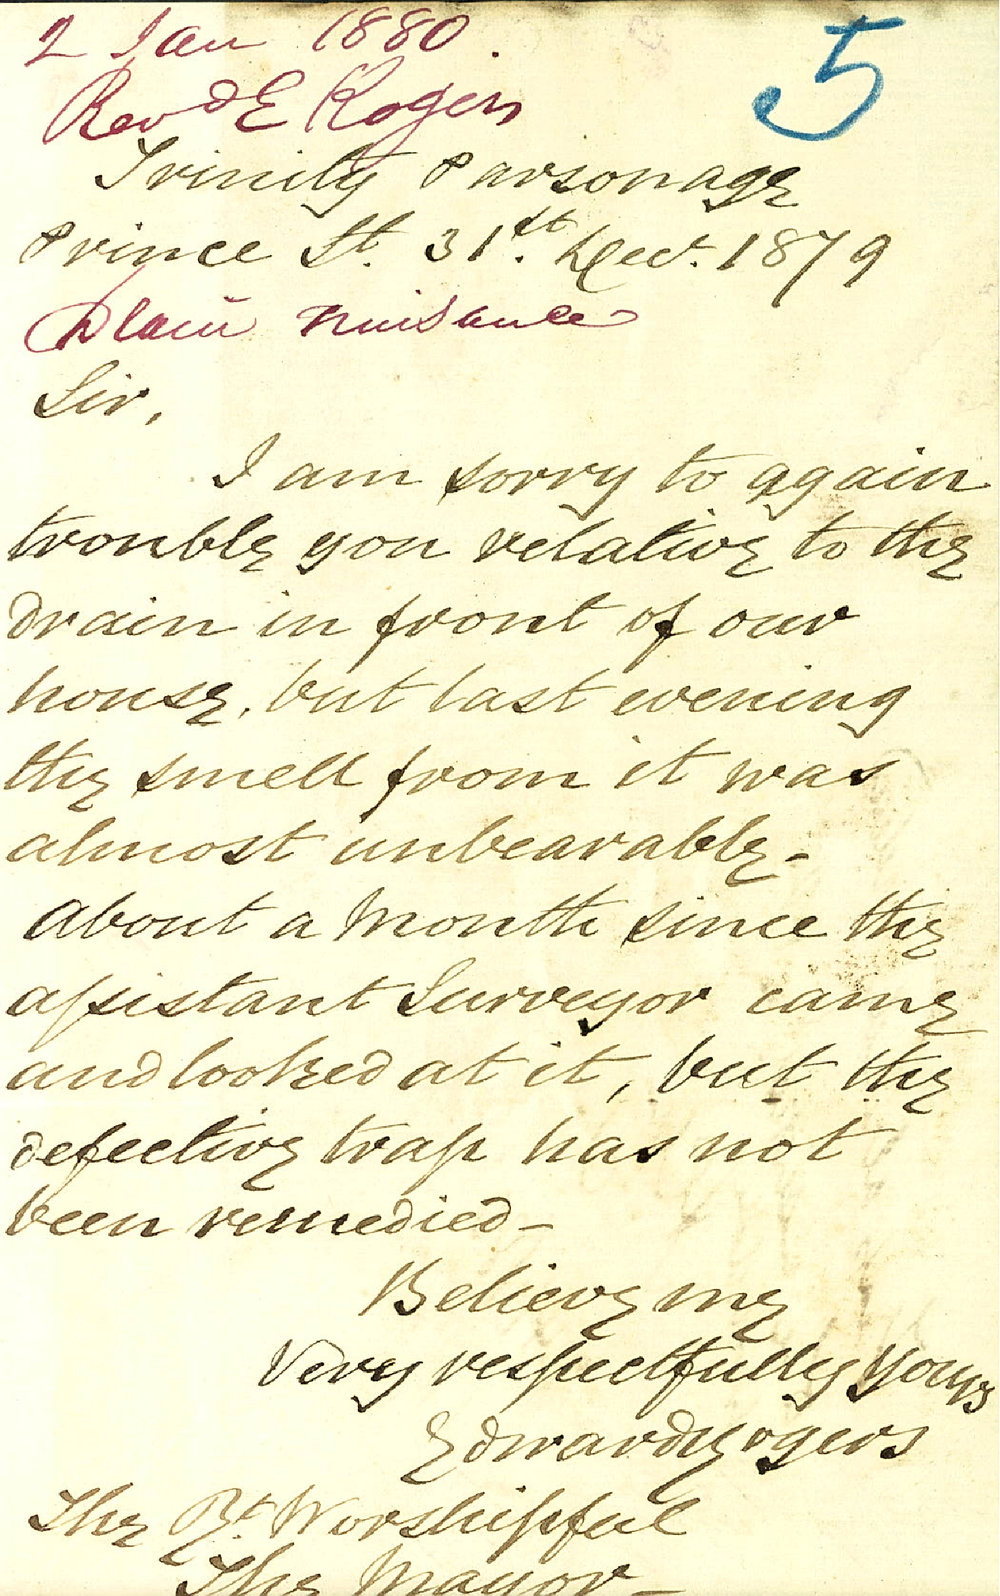 2 Jan 1880.
5
Revd E Rogers
Trinity Parsonage
Prince St. 31st. Decr. 1879
Drain nuisance
Sir,
I am sorry to again
trouble you relative to the
drain in front of our
house, but last evening
the smell from it was
almost unbearable-
About a Month since the
assistant Surveyor came
and looked at it, but the
defective trap has not
been remedied-
Believe me
Very respectfully Yours
Edward Rogers
The Rt. Worshipful
The Mayor-